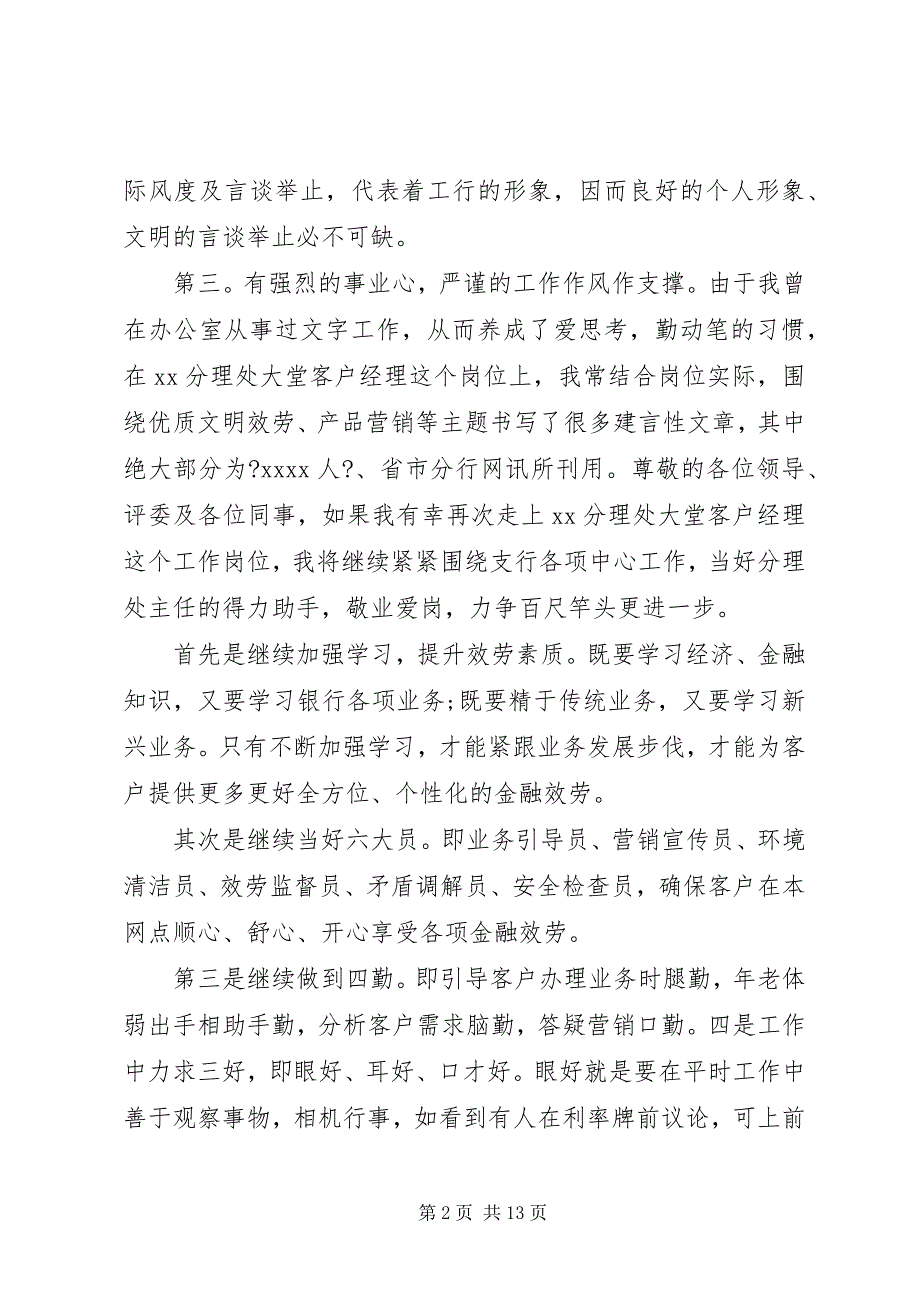 际风度及言谈举止，代表着工行的形象，因而良好的个人形象、
文明的言谈举止必不可缺。
第三。有强烈的事业心，严谨的工作作风作支撑。由于我曾
在办公室从事过文字工作，从而养成了爱思考，勤动笔的习惯，
在 xx 分理处大堂客户经理这个岗位上，我常结合岗位实际，围
绕优质文明效劳、产品营销等主题书写了很多建言性文章，其中
绝大部分为?xxxx 人?、省市分行网讯所刊用。尊敬的各位领导、
评委及各位同事，如果我有幸再次走上 xx 分理处大堂客户经理
这个工作岗位，我将继续紧紧围绕支行各项中心工作，当好分理
处主任的得力助手，敬业爱岗，力争百尺竿头更进一步。
首先是继续加强学习，提升效劳素质。既要学习经济、金融
知识，又要学习银行各项业务;既要精于传统业务，又要学习新
兴业务。只有不断加强学习，才能紧跟业务发展步伐，才能为客
户提供更多更好全方位、个性化的金融效劳。
其次是继续当好六大员。即业务引导员、营销宣传员、环境
清洁员、效劳监督员、矛盾调解员、安全检查员，确保客户在本
网点顺心、舒心、开心享受各项金融效劳。
第三是继续做到四勤。即引导客户办理业务时腿勤，年老体
弱出手相助手勤，分析客户需求脑勤，答疑营销口勤。四是工作
中力求三好，即眼好、耳好、口才好。眼好就是要在平时工作中
善于观察事物，相机行事，如看到有人在利率牌前议论，可上前
第 2 页 共 13 页